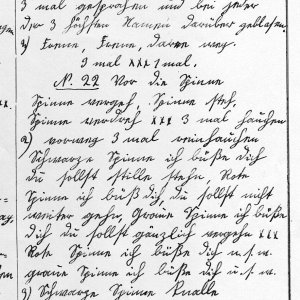 3 mal gesprochen und bei jeder
der 3 höchsten Namen darüber geblasen.
3) Irrene, Irrene, darre weg.
3 mal xxx 1 mal.
N. 22 Vor die Spinne
Spinne vergeh, Spinne steh,
Spinne verdreh xxx 3 mal hauchen
2) vorweg 3 mal reinhauchen
Schwarze Spinne ich büße dich
du sollst stille stehn, Rote
Spinne ich büß dich, du sollst nicht
weiter gehn, Graue Spinne ich büße
dich du sollst gänzlich vergehn xxx
Rote Spinne ich büße dich u.s.w.
graue Spinne ich büße dich u.s.w.
3) Schwarze Spinne knalle